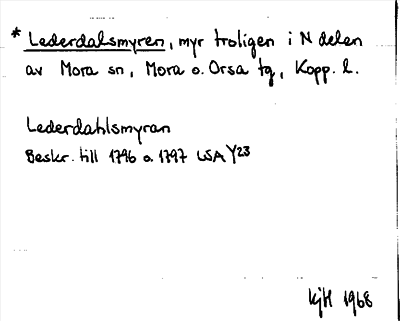 * Lederdalsmyren, myr troligen i N delen
av Mora sn, Mora o. Orsa tg, Kopp. l.
Lederdahlsmyran
Beskr. till 1796 o. 1797 LSA Y23
KjH 1968